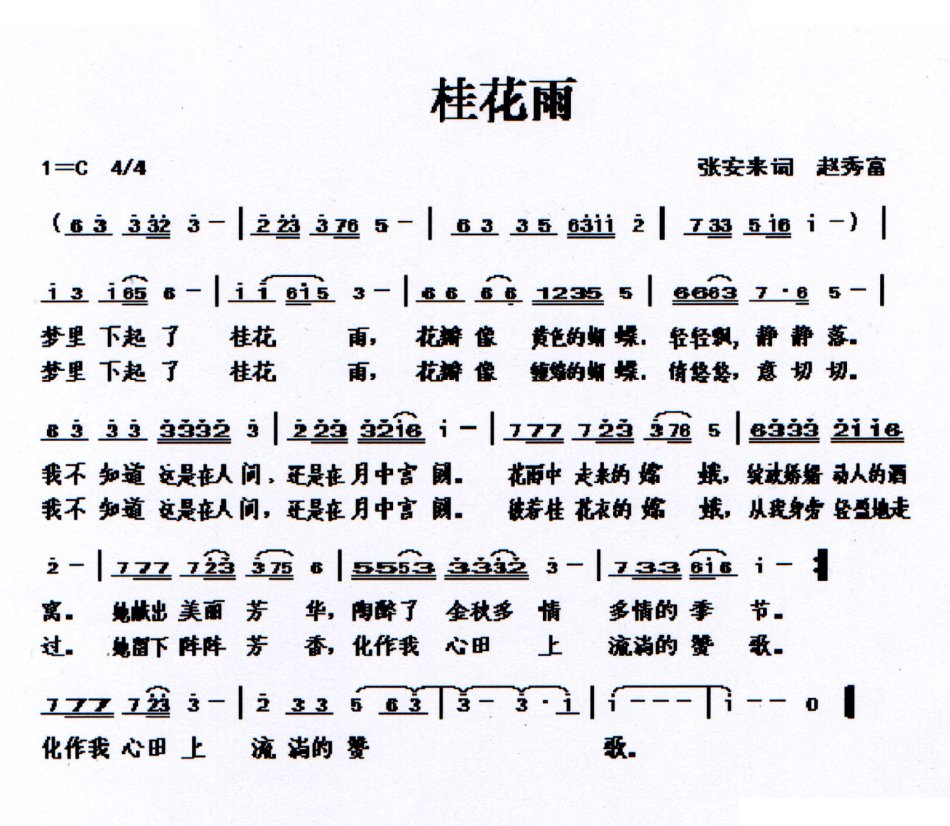 桂花雨
1=C 4/4 张安来词 赵秀富
(6 3 3 32 3 - | 2 23 3 76 5 - | 6 3 3 5 6311 2 | 7 33 5 16 i - ) |
i 3 i 65 6 - | i i 6i5 3 - | 6 6 6 6 1235 5 | 6663 7·6 5 - |
梦里 下起 了 桂花 雨, 花瓣 像 黄色的蝴 蝶. 轻轻飘, 静 静 落。
梦里 下起 了 桂花 雨, 花瓣 像 的蝴 蝶. 情悠悠, 意 切 切.
6 3 3 3 3332 3 | 2 23 32i6 i - | 7 77 7 23 3 76 5 | 6333 2ii6
我不 知道 这是在人 间, 还是在 月中宫 阙。 花雨中 走来的 嫦 娥, 绽放娇媚 动人的酒
我不 知道 这是在人 间, 还是在 月中宫 阙。 披着桂 花衣的 嫦 娥, 从我身旁 轻盈地走
2 - | 7 77 7 23 3 75 6 | 5553 3332 3 - | 7 33 6i6 i - :|
窝。 她献出 美丽 芳 华, 陶醉了 金秋多 情 多情的 季 节.
过. 她留下 阵阵 芳 香, 化作我 心田 上 流淌的 赞 歌.
7 77 7 23 3 - | 2 3 3 5 6 3 | 3 - 3 · i | i - - - | i - - 0
化作我 心田 上 流 淌的 赞 歌.